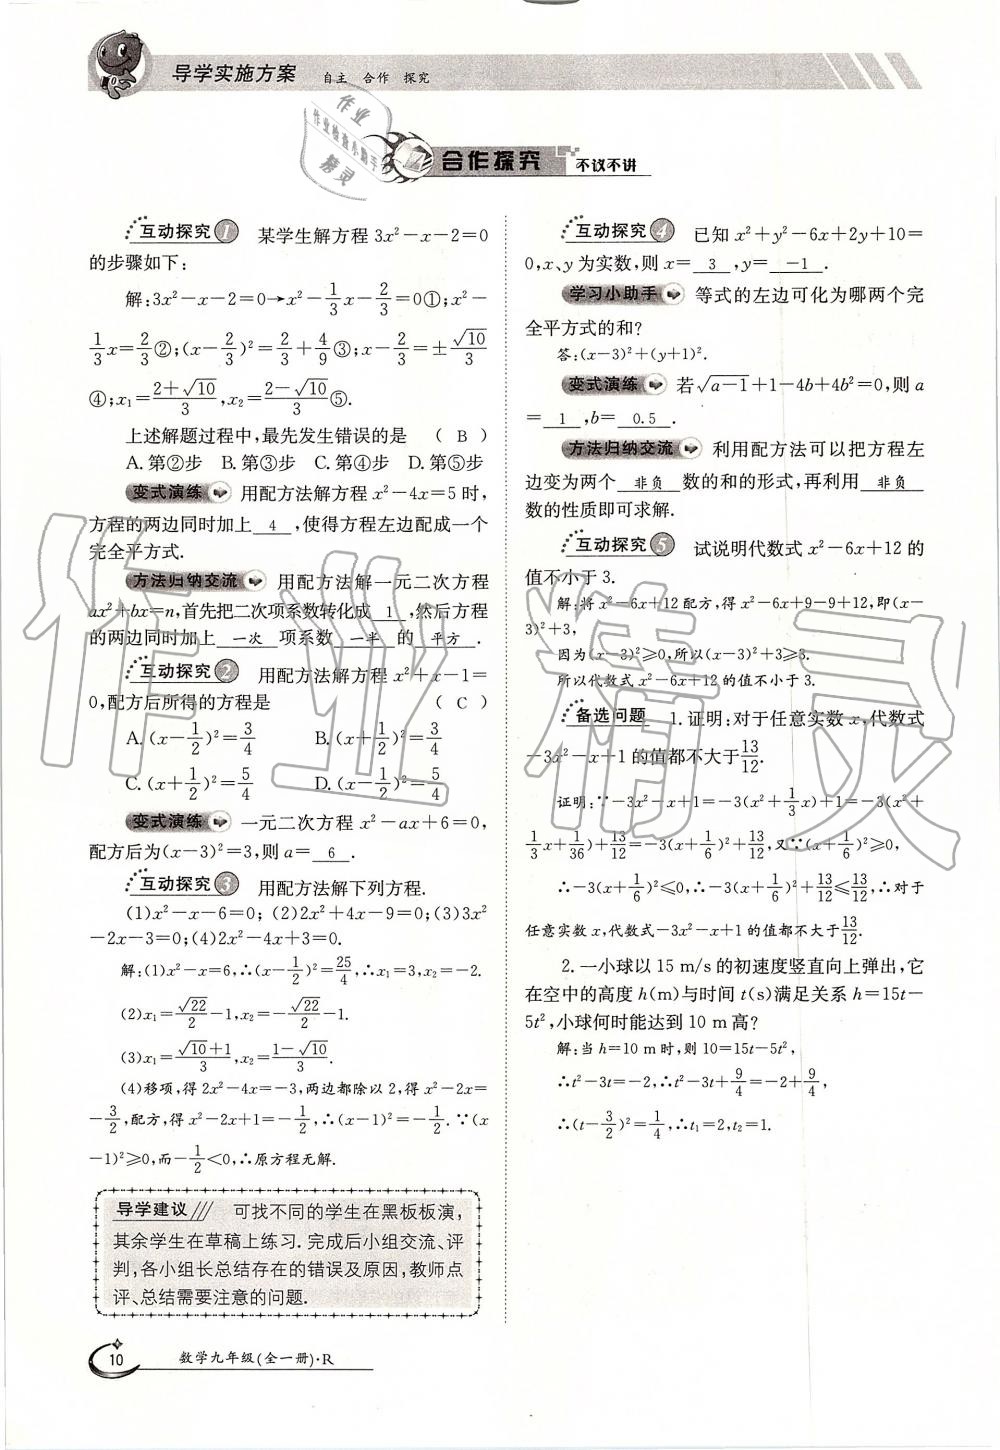 导学实施方案 自主 合作 探究
作业
作业检查小助手
精灵
合作探究 不议不讲
互动探究1 某学生解方程3x²-x-2=0
的步骤如下:
解:3x²-x-2=0→x²-1/3x-2/3=0①;x²-
1/3x=2/3②;(x-2/3)²=2/3+4/9③;x-2/3=±√10/3
④;x₁=(2+√10)/3,x₂=(2-√10)/3⑤.
上述解题过程中,最先发生错误的是 ( B )
A.第②步 B.第③步 C.第④步 D.第⑤步
变式演练 用配方法解方程x²-4x=5时,
方程的两边同时加上 4 ,使得方程左边配成一个
完全平方式.
方法归纳交流 用配方法解一元二次方程
ax²+bx=n,首先把二次项系数转化成 1 ,然后方程
的两边同时加上 一次 项系数 一半 的 平方 .
互动探究2 用配方法解方程x²+x-1=
0,配方后所得的方程是 ( C )
A.(x-1/2)²=3/4 B.(x+1/2)²=3/4
C.(x+1/2)²=5/4 D.(x-1/2)²=5/4
变式演练 一元二次方程x²-ax+6=0,
配方后为(x-3)²=3,则a= 6 .
互动探究3 用配方法解下列方程.
(1)x²-x-6=0;(2)2x²+4x-9=0;(3)3x²
-2x-3=0;(4)2x²-4x+3=0.
解:(1)x²-x=6,∴(x-1/2)²=25/4,∴x₁=3,x₂=-2.
(2)x₁=√22/2-1,x₂=-√22/2-1.
(3)x₁=(√10+1)/3,x₂=(1-√10)/3.
(4)移项,得2x²-4x=-3,两边都除以2,得x²-2x=
-3/2,配方,得x²-2x+1=-1/2,∴(x-1)²=-1/2.∵(x
-1)²≥0,而-1/2<0,∴原方程无解.
导学建议 可找不同的学生在黑板板演,
其余学生在草稿上练习.完成后小组交流、评
判,各小组长总结存在的错误及原因,教师点
评、总结需要注意的问题.
10 数学九年级(全一册)·R
互动探究4 已知x²+y²-6x+2y+10=
0,x、y为实数,则x= 3 ,y= -1 .
学习小助手 等式的左边可化为哪两个完
全平方式的和?
答:(x-3)²+(y+1)².
变式演练 若√a-1+1-4b+4b²=0,则a
= 1 ,b= 0.5 .
方法归纳交流 利用配方法可以把方程左
边变为两个 非负 数的和的形式,再利用 非负
数的性质即可求解.
互动探究5 试说明代数式x²-6x+12的
值不小于3.
解:将x²-6x+12配方,得x²-6x+9-9+12,即(x-
3)²+3,
因为(x-3)²≥0,所以(x-3)²+3≥3.
所以代数式x²-6x+12的值不小于3.
备选问题 1.证明:对于任意实数x,代数式
-3x²-x+1的值都不大于13/12.
证明:∵-3x²-x+1=-3(x²+1/3x)+1=-3(x²+
1/3x+1/36)+13/12=-3(x+1/6)²+13/12,又∵(x+1/6)²≥0,
∴-3(x+1/6)²≤0,∴-3(x+1/6)²+13/12≤13/12,∴对于
任意实数x,代数式-3x²-x+1的值都不大于13/12.
2.一小球以15 m/s的初速度竖直向上弹出,它
在空中的高度h(m)与时间t(s)满足关系h=15t-
5t²,小球何时能达到10 m高?
解:当h=10 m时,则10=15t-5t²,
∴t²-3t=-2,∴t²-3t+9/4=-2+9/4,
∴(t-3/2)²=1/4,∴t₁=2,t₂=1.
作业精灵